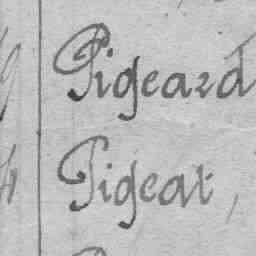 Pigeard
Pigeat,